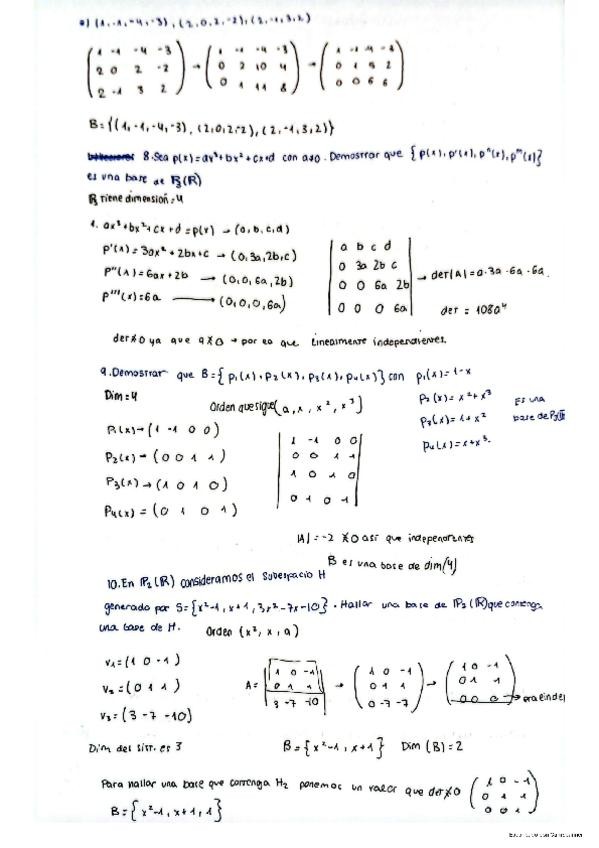 a) (1,-1,-4,-3), (2,0,2,-2), (2,-1,3,2)
(1 -1 -4 -3 → (1 -1 -4 -3 → (1 -1 -4 -3
2 0 2 -2 0 2 10 4 0 1 5 2
2 -1 3 2) 0 1 11 8) 0 0 6 6)
B = {(1,-1,-4,-3), (2,0,2,-2), (2,-1,3,2)}
8. Sea p(x) = ax³+bx²+cx+d con a≠0. Demostrar que {p(x), p'(x), p''(x), p'''(x)}
es una base de P₃(R)
P₃ tiene dimensión = 4
1. ax³+bx²+cx+d = p(x) → (a, b, c, d)
p'(x) = 3ax²+2bx+c → (0, 3a, 2b, c)
p''(x) = 6ax+2b → (0, 0, 6a, 2b)
p'''(x) = 6a → (0, 0, 0, 6a)
|a b c d
0 3a 2b c
0 0 6a 2b
0 0 0 6a| → det|A| = a·3a·6a·6a.
det = 108a⁴
det≠0 ya que a≠0 → por eo que linealmente independientes.
9. Demostrar que B = {p₁(x), p₂(x), p₃(x), p₄(x)} con p₁(x) = 1-x
p₂(x) = x²+x³
p₃(x) = 1+x²
p₄(x) = x+x³.
Es una
base de P₃
Dim = 4
Orden que sigue (a, x, x², x³)
P₁(x) → (1 -1 0 0)
P₂(x) → (0 0 1 1)
P₃(x) → (1 0 1 0)
P₄(x) = (0 1 0 1)
|1 -1 0 0
0 0 1 1
1 0 1 0
0 1 0 1|
|A| = -2 ≠0 así que independientes
B es una base de dim(4)
10. En P₂(R) consideramos el subespacio H
generado por S = {x²-1, x+1, 3x²-7x-10}. Hallar una base de P₂(R) que contenga
una base de H. Orden (x², x, a)
v₁ = (1 0 -1)
v₂ = (0 1 1)
v₃ = (3 -7 -10)
A = |1 0 -1 → (1 0 -1 → (1 0 -1
0 1 1 0 1 1 0 1 1
3 -7 -10| 0 -7 -7) 0 0 0)
Dim del sist. es 3 B = {x²-1, x+1} Dim (B) = 2
Para hallar una base que contenga H₂ ponemos un valor que det≠0 (1 0 -1
0 1 1
0 0 1)
B = {x²-1, x+1, 1}